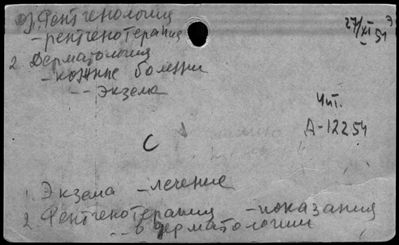 1. Рентгенология
- рентгенотерапия
2 Дерматология
- кожные болезни
-- Экзема
27/XI 51
Чит.
А-12254
С
1. Экзема - лечение
2 Рентгенотерапия - показания
-- в дерматологии